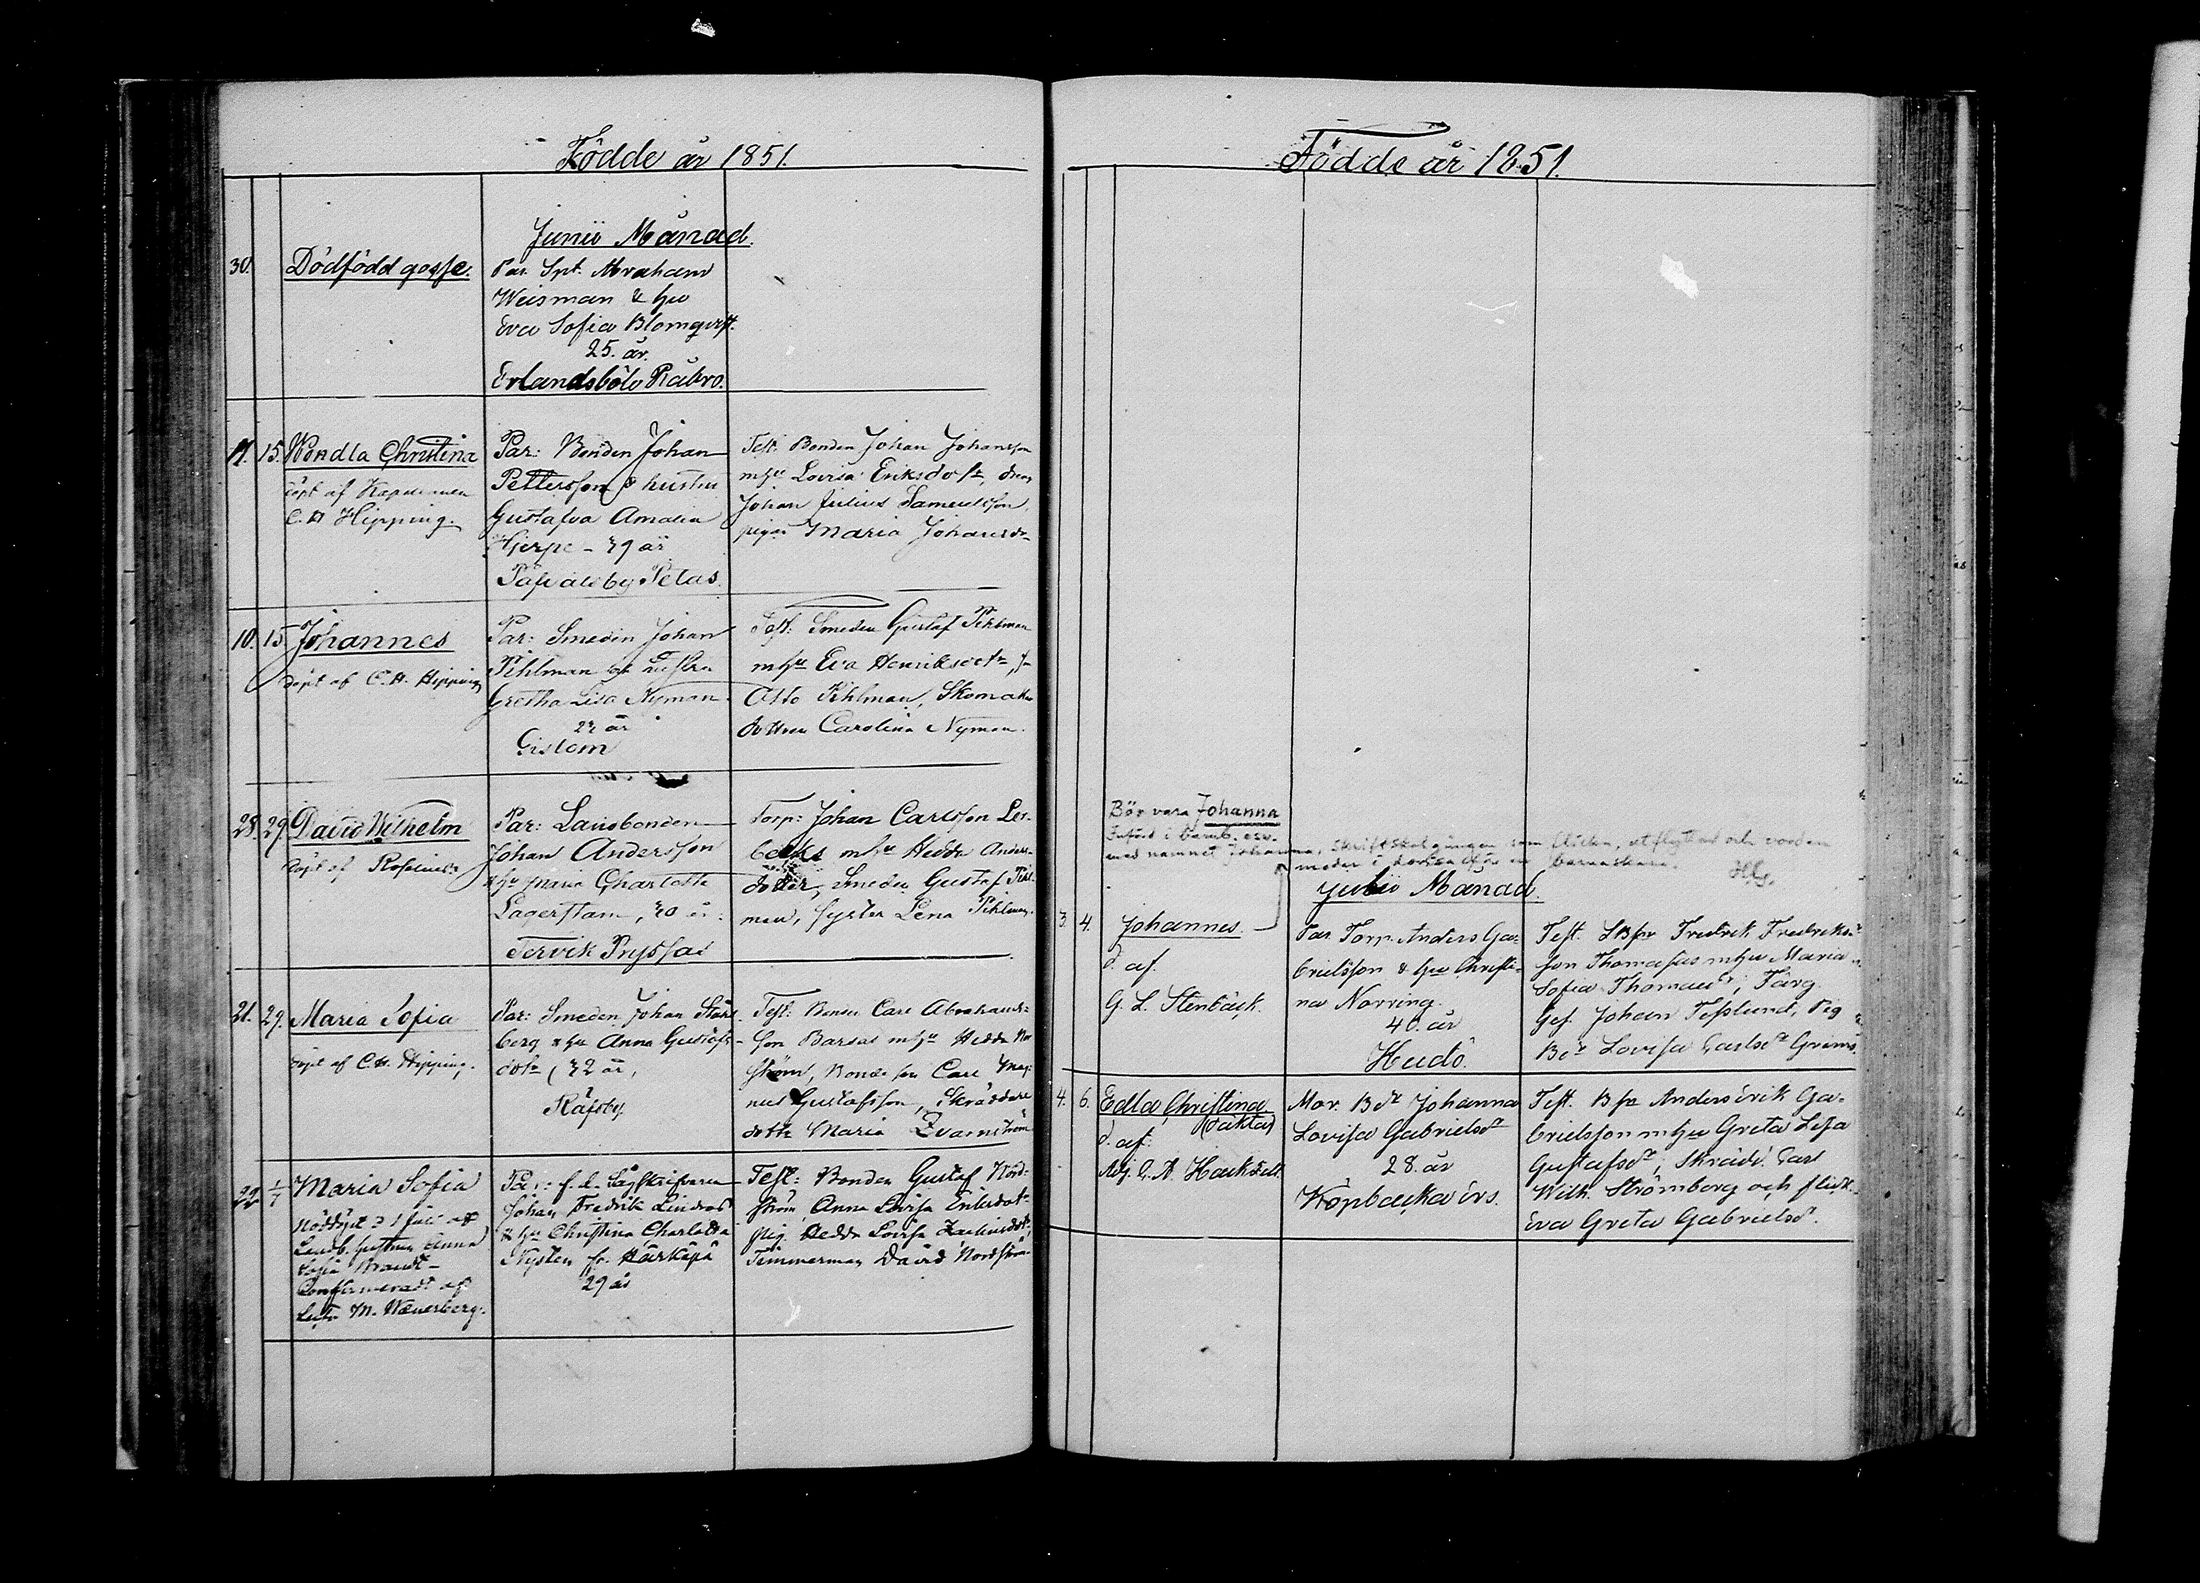 Födde år 1851.
Junii Månad.
30. Dödfödd gosse.
Par. Spt. Abraham
Weisman & hu
Eva Sofia Blomqvist.
25. år.
Erlandsböle Råbro.
11. 15. Wendla Christina
döpt af Kapellanen
C. H Hipping.
Par: Bonden Johan
Pettersson & hustru
Gustafva Amalia
Hjerpe - 29 år
Påfvalsby Petas.
Test. Bonden Johan Johansson
m hu Lovisa Eriksdotr, dreng
Johan Julius Samuelsson,
pigan Maria Johansdr
10. 15. Johannes
döpt af C. H. Hipping
Par: Smeden Johan
Pihlman och hustru
Gretha Lisa Nyman
22 år
Gislom
Test: Smeden Gustaf Pihlman
m hu Eva Henriksdotr,
Otto Pihlman, Skomakar
dottren Carolina Nyman.
28. 29. David Wilhelm
döpt af
Par: Landbonden
Johan Andersson
& hu Maria Charlotta
Lagerstam, 20 år.
Tervik Prystas
Torp: Johan Carlsson Ler-
becks m hu Hedda Anders-
dotter, Smeden Gustaf Pihl-
man, syster Lena Pihlman.
21. 29. Maria Sofia
döpt af C. H. Hipping.
Par: Smeden Johan
berg & hu Anna Gustafs-
dotr, 32 år,
Räfsby
Test: Bonden Carl Abrahams-
son Barsas m hu Hedda
ström, Bonde son Carl Mag-
nus Gustafsson, Skräddare
dottr Maria Qvarnström
22 1/7 Maria Sofia
Nöddöpt d 1 Juli af
Landb. hustrun Anna
Sofia Brandt -
Confirmeradt af
M. Wænerberg.
Par: f. d.
Johan Fredrik Lindros
& hu Christina Charlotta
Nysten fr. Härkäpä
29 år
Test: Bonden Gustaf Nord-
ström, Anna Lovisa Eriksdotr
pig. Hedda Lovisa
Timmerman David Nordström
Födde år 1851.
Bör vara Johanna
Införd i barnb. osv.
med namnet Johanna, skriftskolgången som flicka, utflyttad och vorden
moder i Lovisa till en barnaskara. Hlg.
Julii Månad.
3. 4. Johannes.
d. af.
G. L. Stenbäck.
Par Torp. Anders Ga-
brielsson & hu Christi-
na Norring.
40. år
Hudö.
Test. LBsn Fredrik Fredriks-
son Thomasas m hu Maria
Sofia Thomasdr, Färg.
Ges. Johan Teslund, Pig
Bdr Lovisa Carlsdr Gräns.
4. 6. Edla Christina
(oäkta)
d. af.
Adj. C. A. Hackzell.
Mor. Bdr Johanna
Lovisa Gabrielsdr
28. år
Köpbacka örs.
Test. Bsn Anders Erik Ga-
brielsson m hu Greta Lisa
Gustafsdr, Skrädd. Carl
Wilh. Strömberg och flick.
Eva Greta Gabrielsdr.